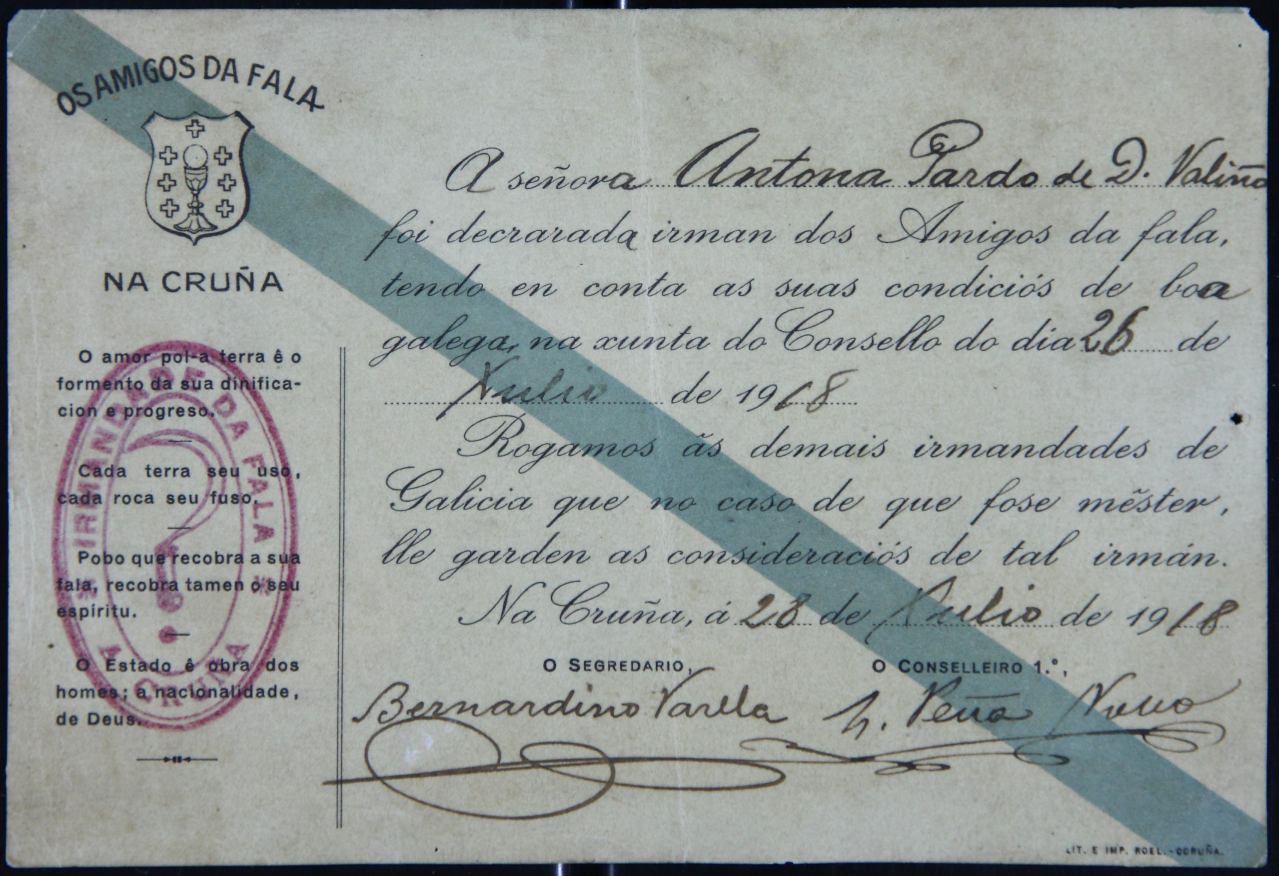 OS AMIGOS DA FALA
NA CRUÑA
O amor pol-a terra ê o
formento da sua dinifica-
cion e progreso.
Cada terra seu uso,
cada roca seu fuso.
Pobo que recobra a sua
fala, recobra tamen o seu
espíritu.
O Estado ê obra dos
homes; a nacionalidade,
de Deus.
IRMANDADE DA FALA
A CRUÑA
A señora Antona Pardo de D. Valiño
foi decrarada irman dos Amigos da fala,
tendo en conta as suas condiciós de boa
galega, na xunta do Consello do dia 26 de
Xulio de 1918
Rogamos ãs demais irmandades de
Galicia que no caso de que fose mẽster,
lle garden as consideraciós de tal irmán.
Na Cruña, á 28 de Xulio de 1918
O SEGREDARIO,
O CONSELLEIRO 1.º,
Bernardino Varela
Peña Novo
LIT. E IMP. ROEL.-CORUÑA.